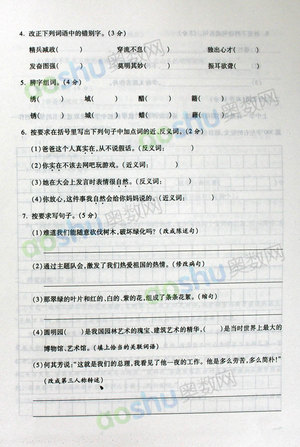 4. 改正下列词语中的错别字。(3 分)
精兵减政(　　) 穿流不息(　　) 独出心才(　　)
发奋图强(　　) 莫明其妙(　　) 振耳欲聋(　　)
5. 辨字组词。(5 分)
绣(　　) 域(　　) 蜡(　　) 籍(　　)
锈(　　) 城(　　) 腊(　　) 藉(　　)
6. 按要求在括号里写出下列句子中加点词的近、反义词。(2 分)
(1)爸爸这个人真实在,从不说假话。(反义词:　　)
(2)你实在不该去网吧玩游戏。(近义词:　　)
(3)她在大会上发言时表情很自然。(反义词:　　)
(4)你放心,这件事我自然会给你妈妈说的。(近义词:　　)
7. 按要求写句子。(5 分)
(1)难道我们能随意砍伐树木,破坏绿化吗?(改成陈述句)
(2)通过主题队会,激发了我们热爱祖国的热情。(修改病句)
(3)那翠绿的叶片和红的、白的、紫的花,组成了条条花篱。(缩句)
(4)圆明园(　　)是我国园林艺术的瑰宝、建筑艺术的精华,(　　)是当时世界上最大的
博物馆、艺术馆。(填上恰当的关联词语)
(5)何其芳说:"这就是我们的总理,我看见了他一夜的工作。他是多么劳苦,多么简朴!"
(改成第三人称转述)
aoshu奥数网
aoshu奥数网
aoshu奥数网